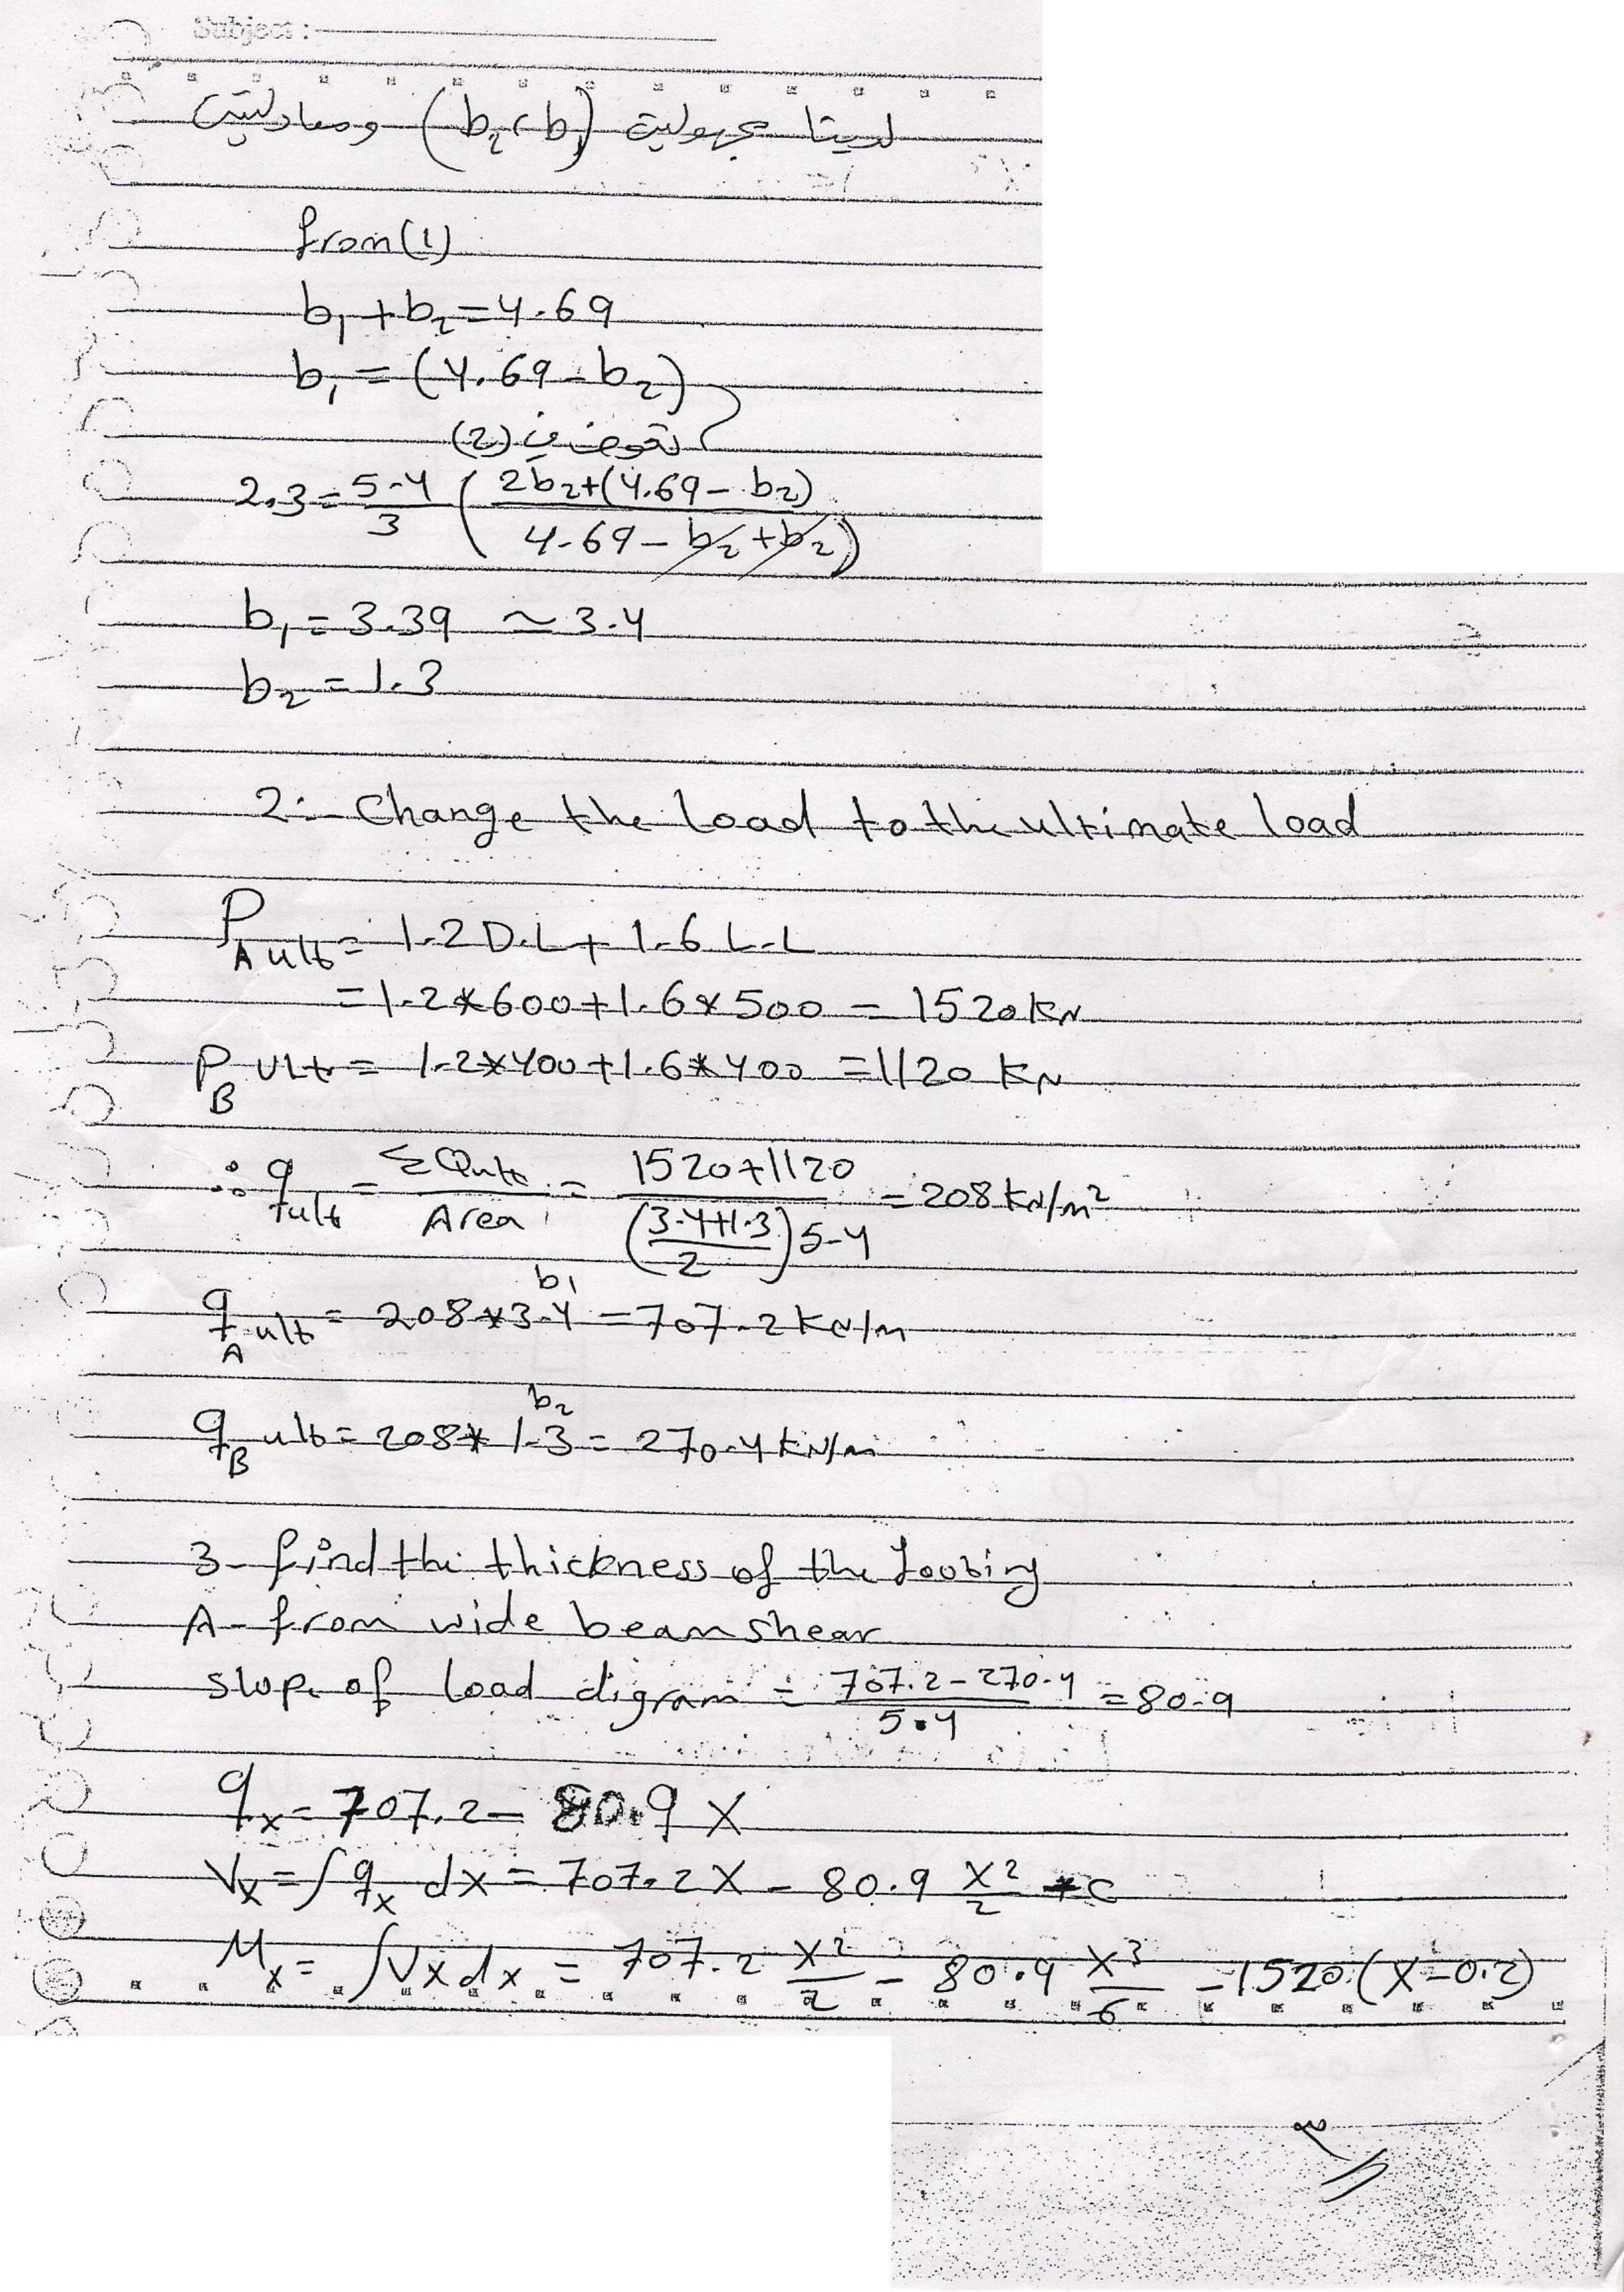 Subject :
لدينا مجهولين (b₂ ، b₁) ومعادلتين
from (1)
b₁ + b₂ = 4.69
b₁ = (4.69 - b₂)
نعوض في (2)
2.3 = 5.4/3 ( (2b₂+(4.69 - b₂)) / (4.69 - b₂ + b₂) )
b₁ = 3.39 ≃ 3.4
b₂ = 1.3
2:- Change the load to the ultimate load
P_A ult = 1.2 D.L + 1.6 L.L
= 1.2*600+1.6*500 = 1520 kN
P_B ult = 1.2*400+1.6*400 = 1120 kN
∴ q ult = ΣQult / Area = (1520+1120) / (((3.4+1.3)/2) 5.4) = 208 kN/m²
b₁
q_A ult = 208*3.4 = 707.2 kN/m
b₂
q_B ult = 208*1.3 = 270.4 kN/m
3- find the thickness of the footing
A- from wide beam shear
slope of load digram = (707.2-270.4) / 5.4 = 80.9
q_x = 707.2 - 80.9 X
V_x = ∫ q_x dx = 707.2 X - 80.9 X²/2 + c
M_x = ∫ Vx dx = 707.2 X²/2 - 80.9 X³/6 - 1520 (X-0.2)